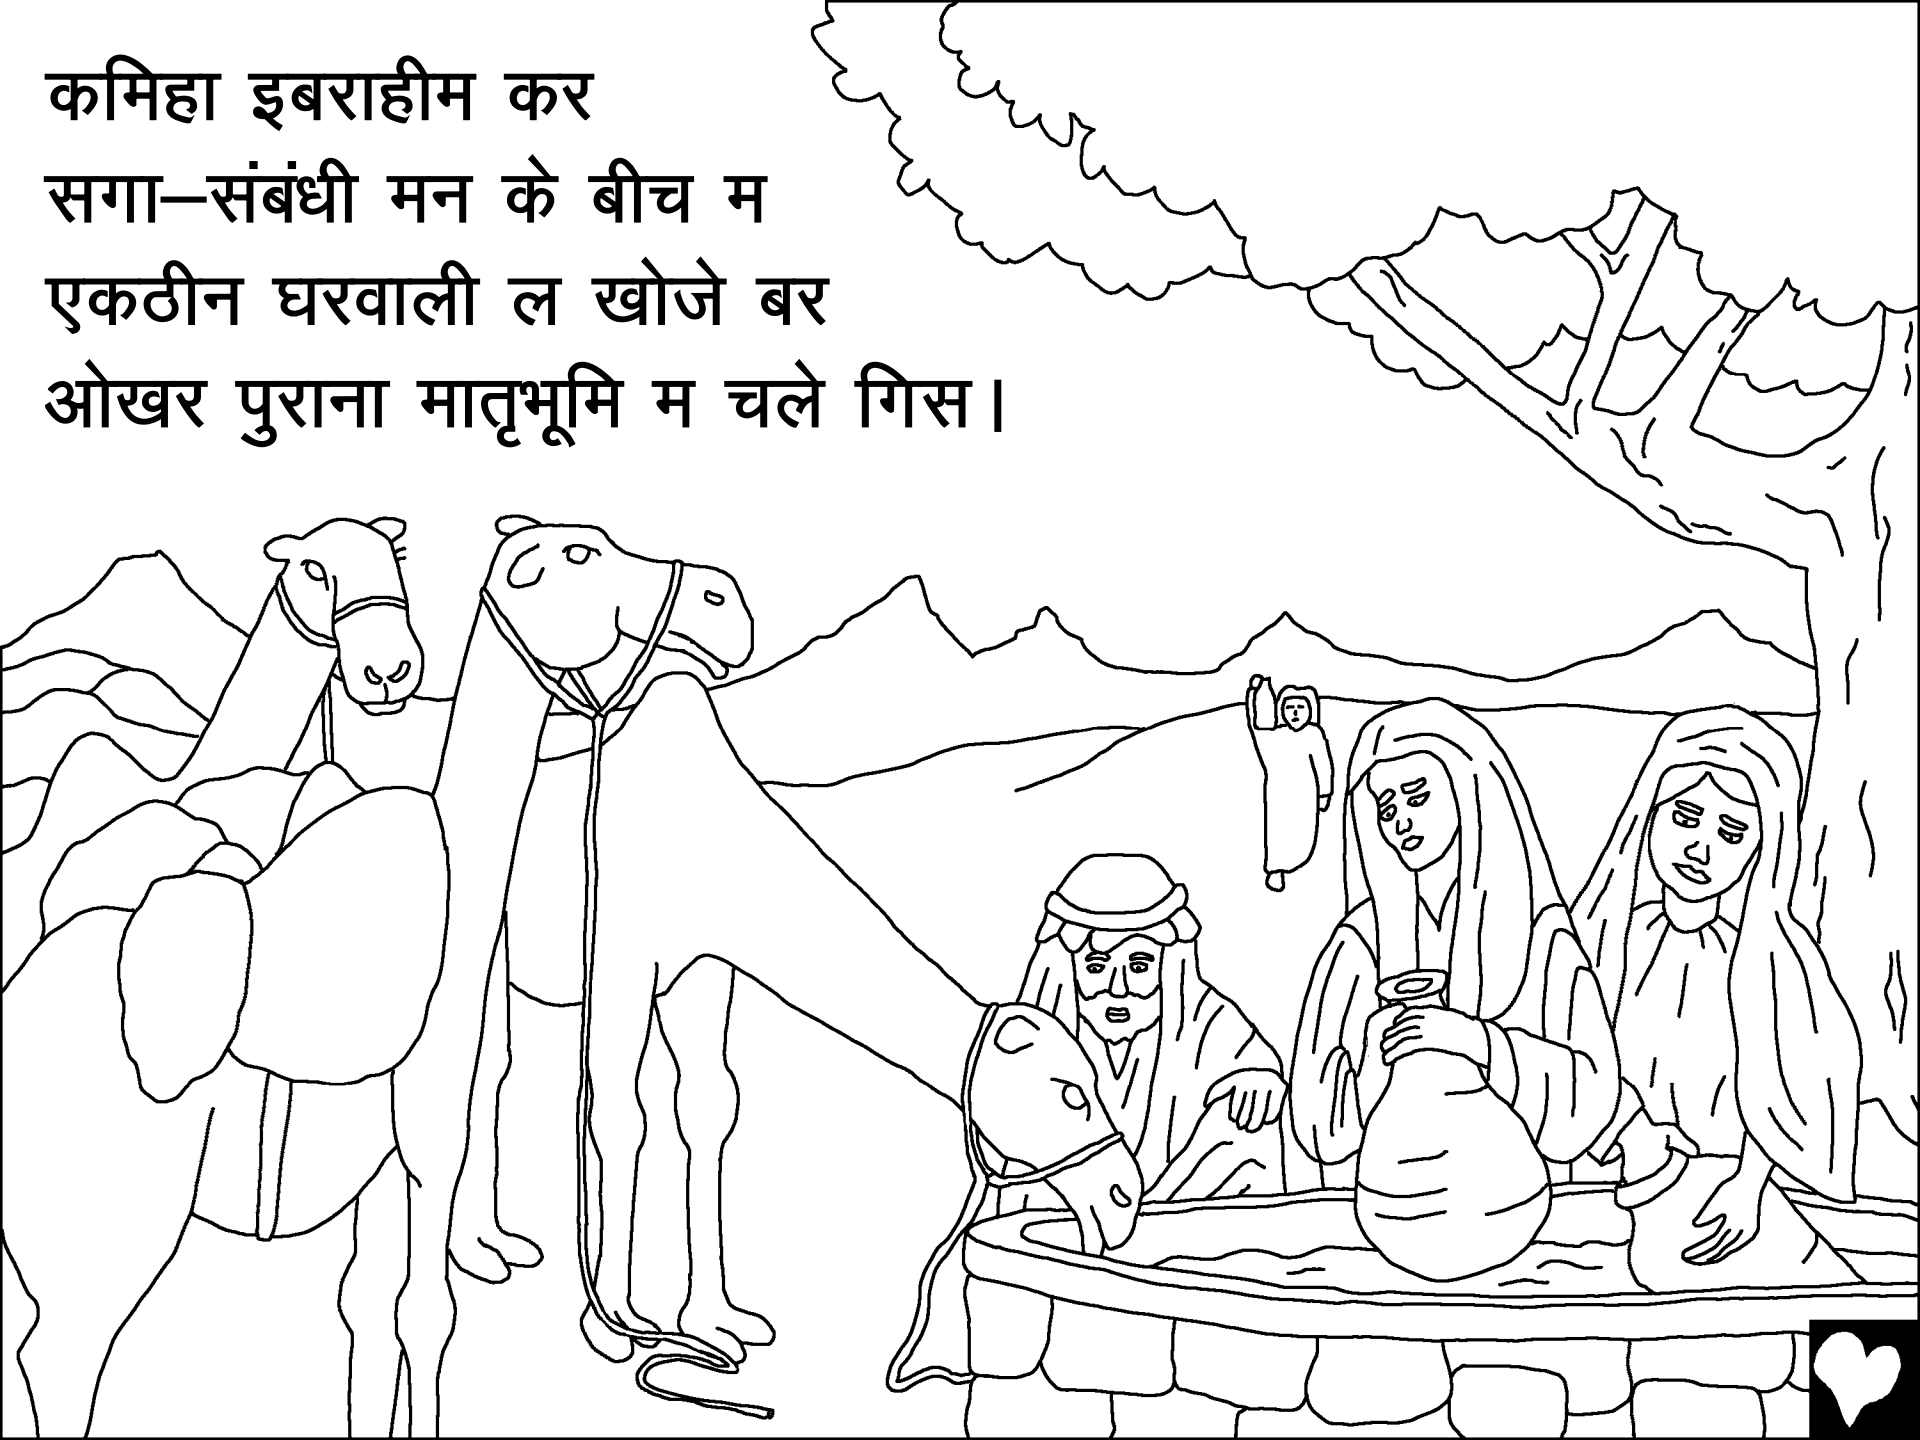 कमिहा इबराहीम कर
सगा–संबंधी मन के बीच म
एकठीन घरवाली ल खोजे बर
ओखर पुराना मातृभूमि म चले गिस।